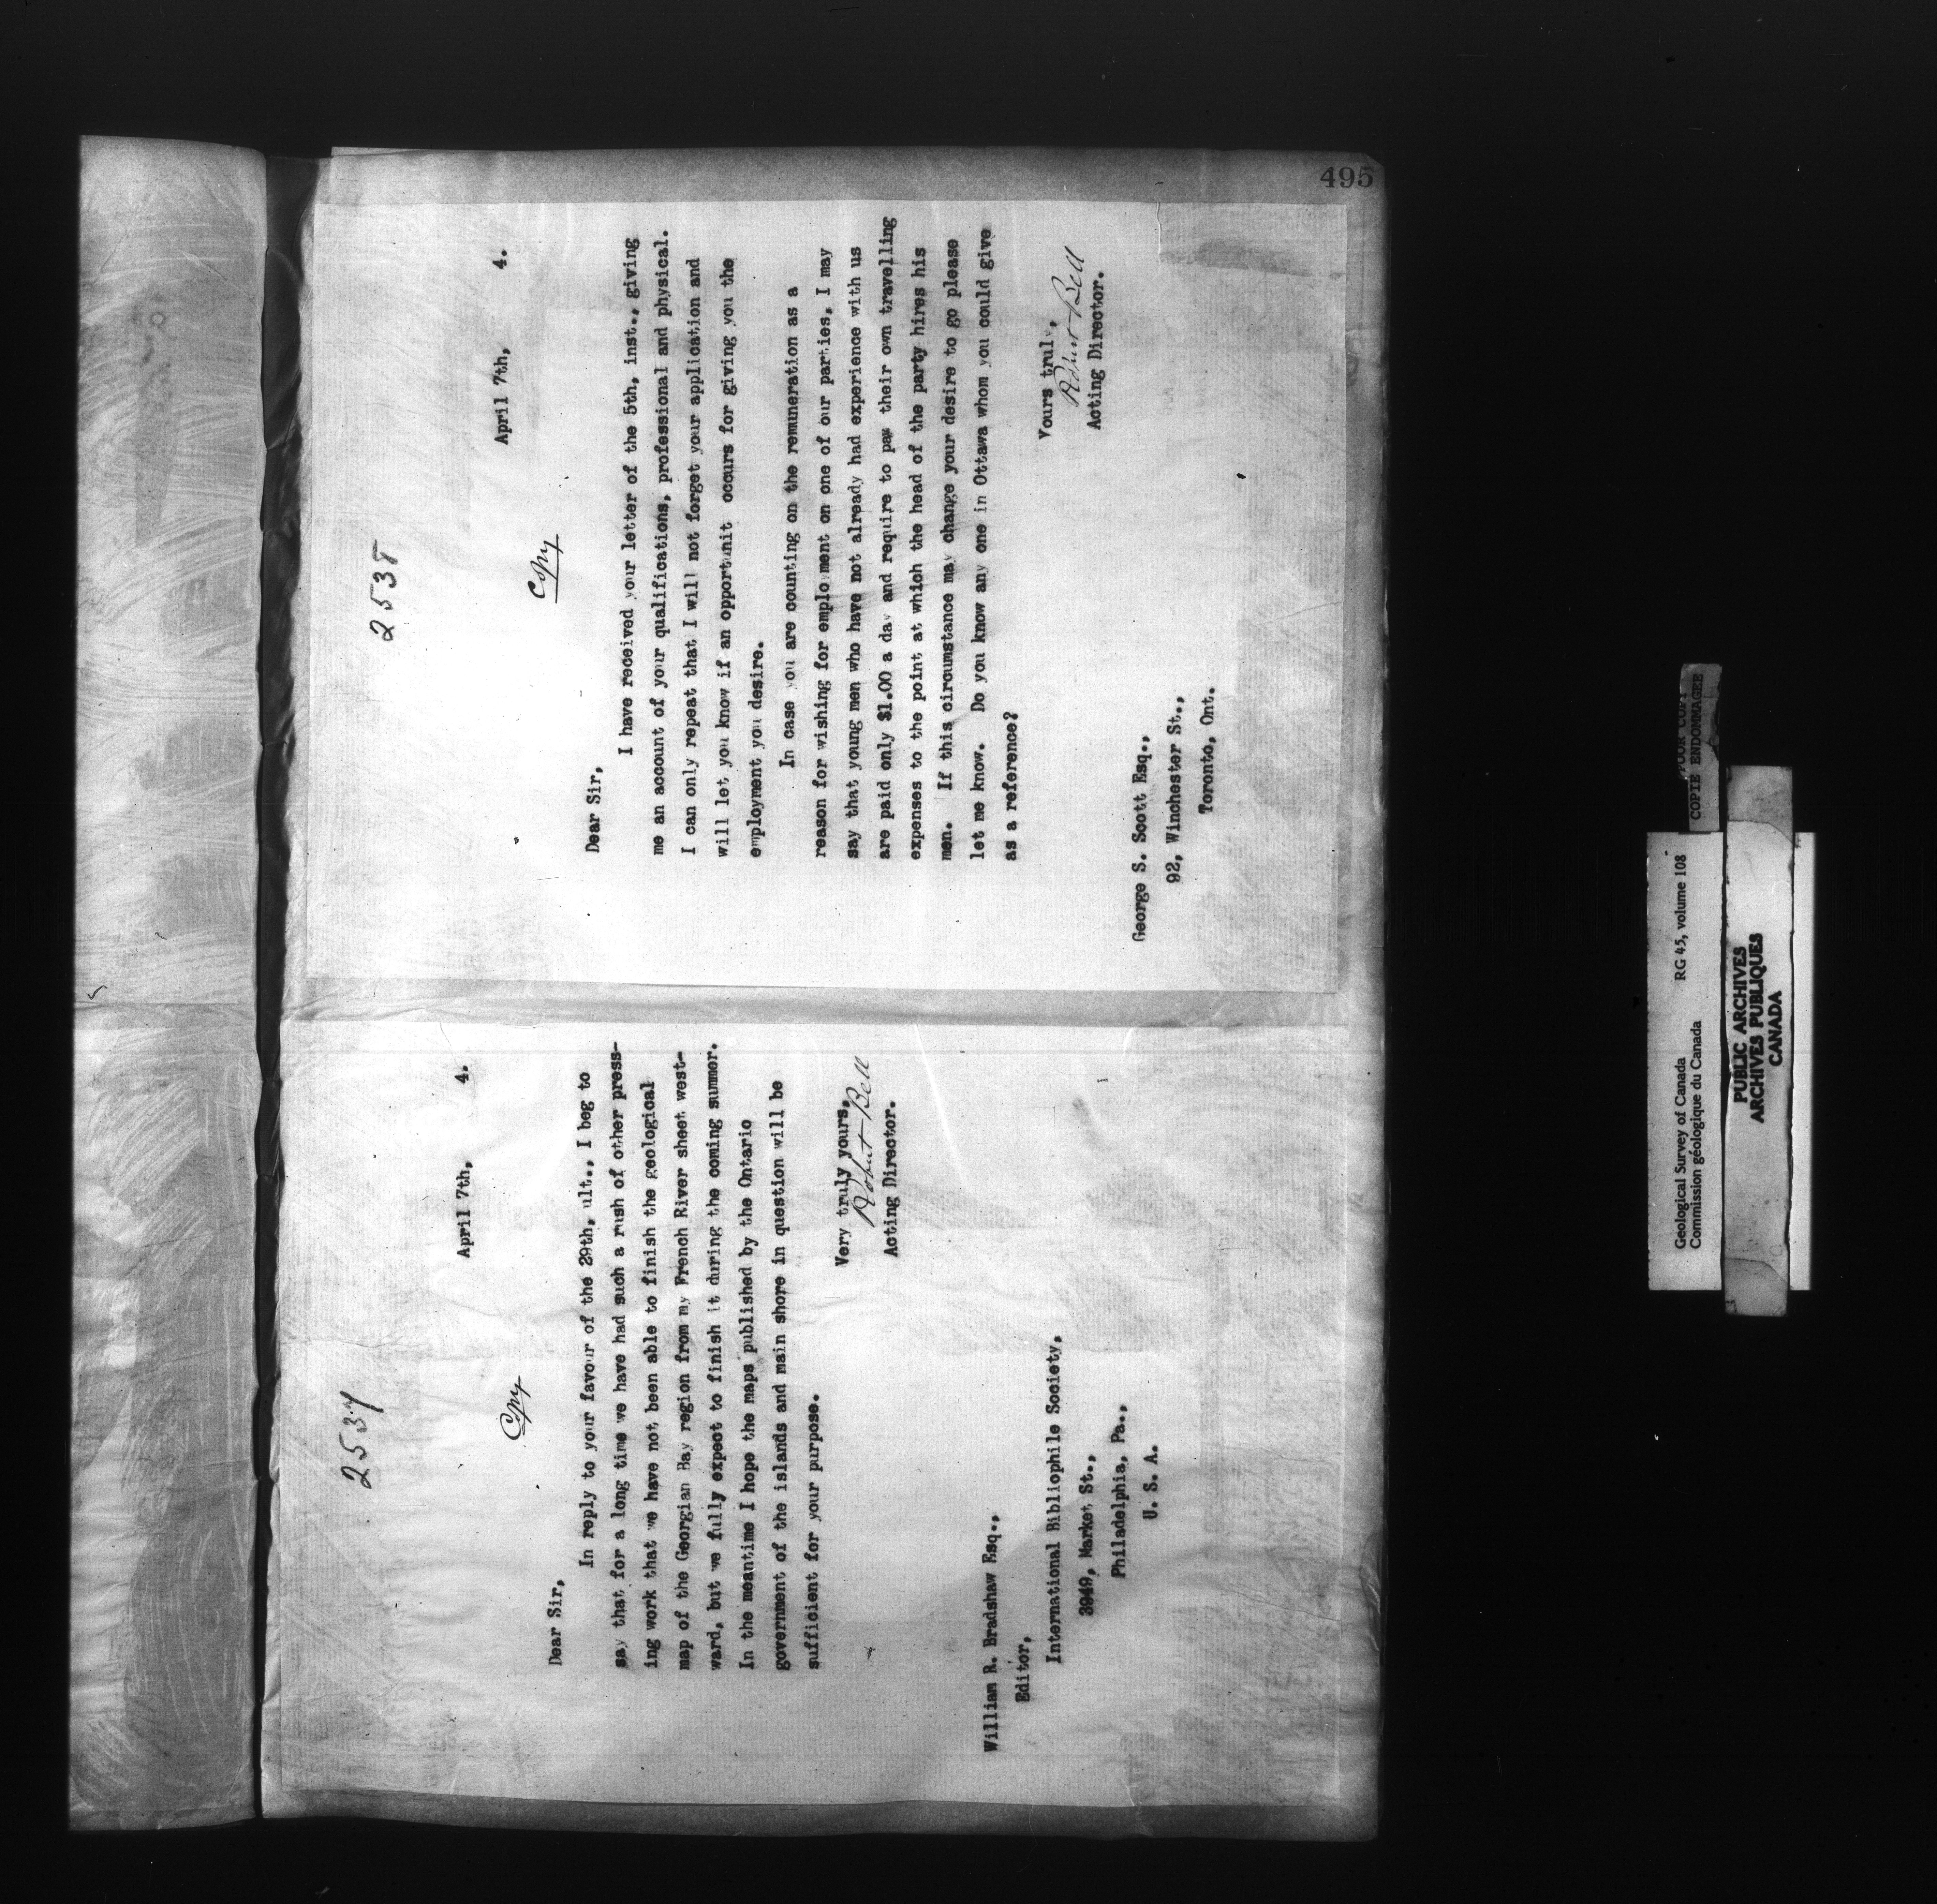 495
2537
April 7th, 4.
Copy
Dear Sir,
In reply to your favour of the 29th, ult., I beg to
say that for a long time we have had such a rush of other press-
ing work that we have not been able to finish the geological
map of the Georgian Bay region from my French River sheet west-
ward, but we fully expect to finish it during the coming summer.
In the meantime I hope the maps published by the Ontario
government of the islands and main shore in question will be
sufficient for your purpose.
Very truly yours,
Robert Bell
Acting Director.
William R. Bradshaw Esq.,
Editor,
International Bibliophile Society,
3949, Market St.,
Philadelphia, Pa.,
U. S. A.
2538
April 7th, 4.
Copy
Dear Sir,
I have received your letter of the 5th, inst., giving
me an account of your qualifications, professional and physical.
I can only repeat that I will not forget your application and
will let you know if an opportunit occurs for giving you the
employment you desire.
In case you are counting on the remuneration as a
reason for wishing for employment on one of our parties, I may
say that young men who have not already had experience with us
are paid only $1.00 a day and require to pay their own travelling
expenses to the point at which the head of the party hires his
men. If this circumstance may change your desire to go please
let me know. Do you know any one in Ottawa whom you could give
as a reference?
Yours truly,
Robert Bell
Acting Director.
George S. Scott Esq.,
92, Winchester St.,
Toronto, Ont.
COPIE ENDOMMAGEE
Geological Survey of Canada RG 45, volume 108
Commission géologique du Canada
PUBLIC ARCHIVES
ARCHIVES PUBLIQUES
CANADA